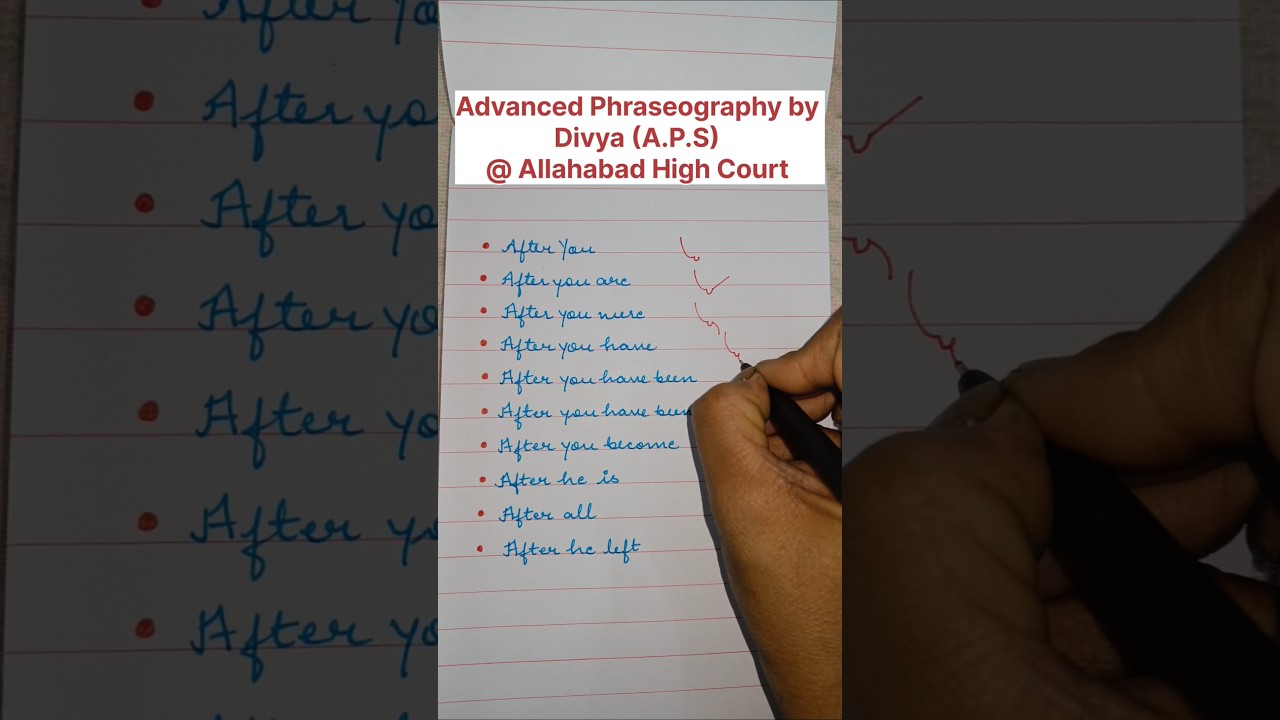 Advanced Phraseography by
Divya (A.P.S)
@ Allahabad High Court
• After You
• After you are
• After you were
• After you have
• After you have been
• After you have been
• After you become
• After he is
• After all
• After he left